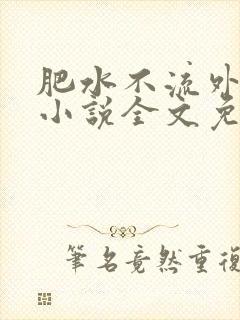 肥水不流外
小説全文免
筆名竟然重復